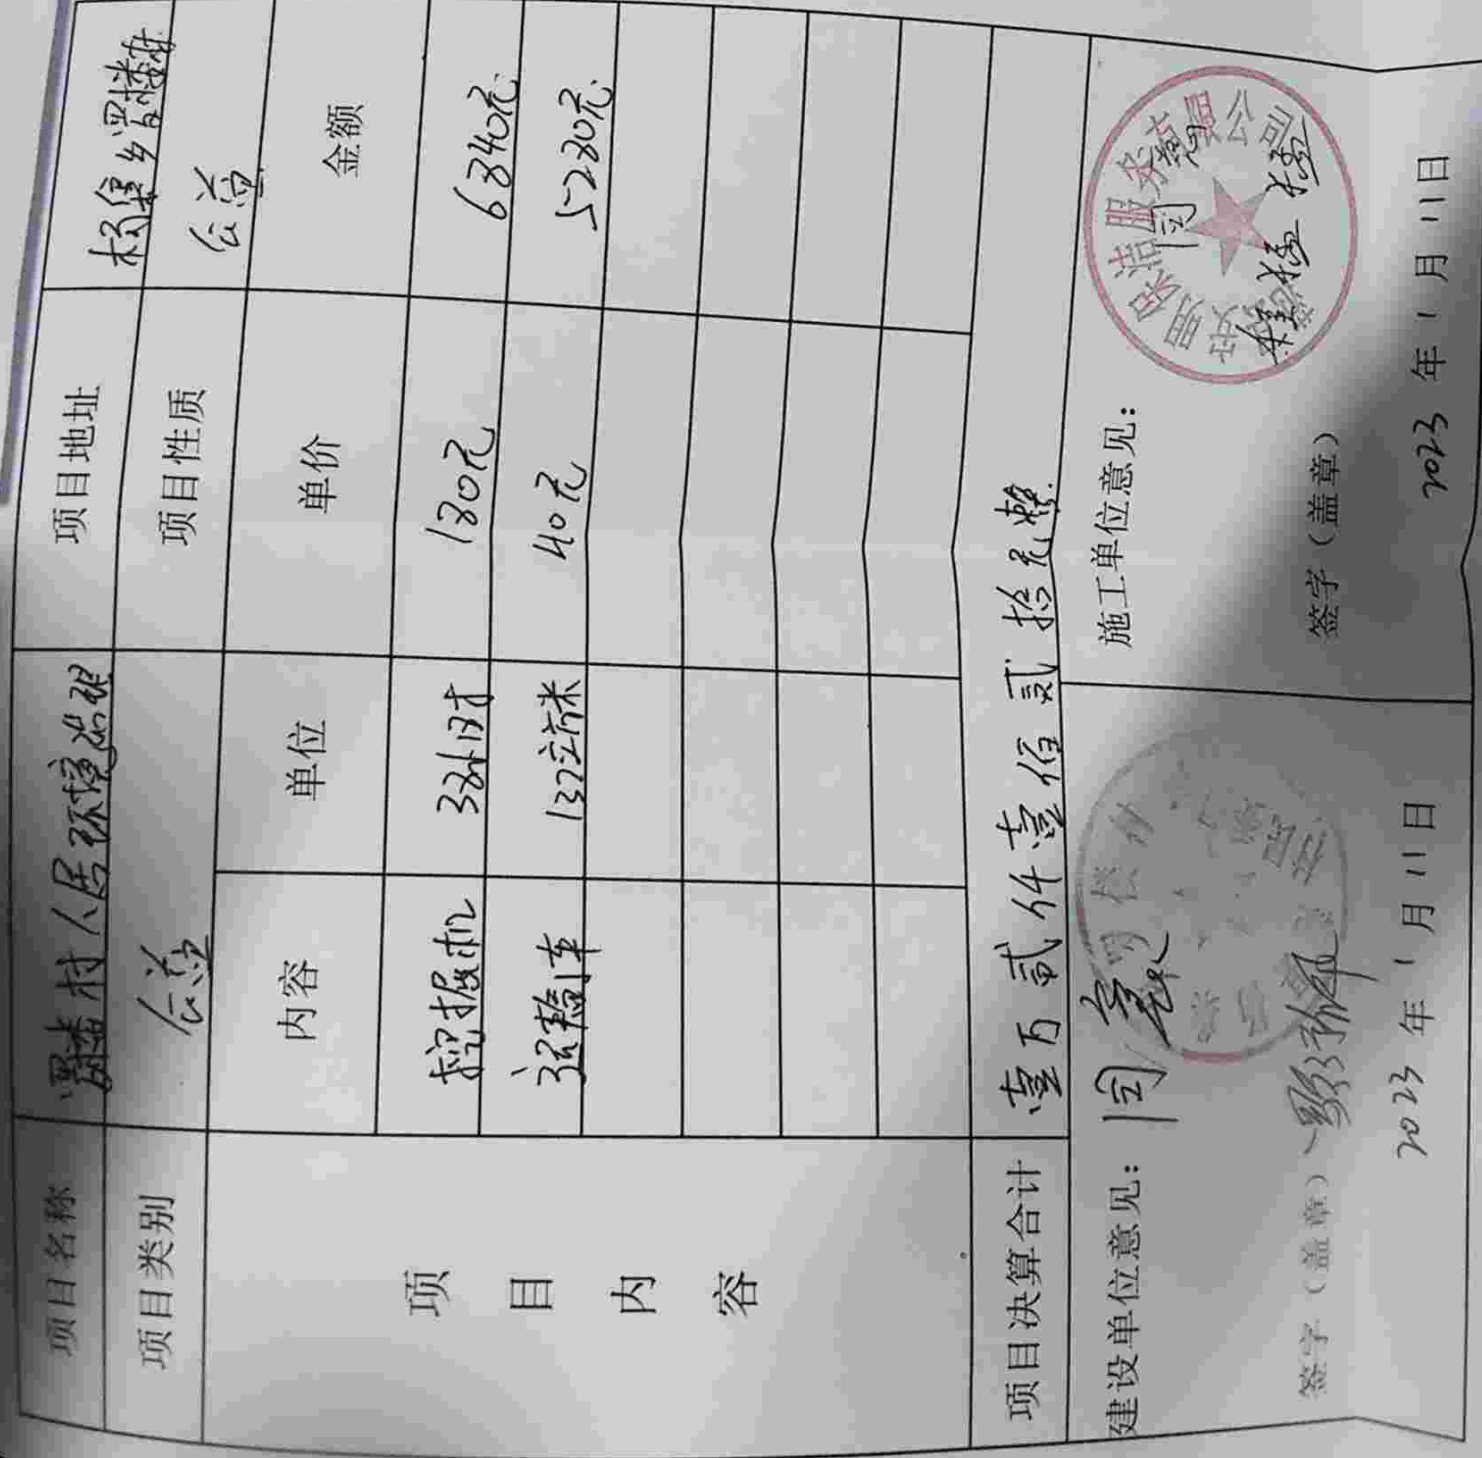 项目名称 罾楼村人居环境治理 项目地址 杨集乡罾楼村
项目类别 公益 项目性质 公益
项目内容
内容 单位 单价 金额
挖掘机 38小时 180元 6840元
运输车 132立方米 40元 5280元
项目决算合计 壹万贰仟壹佰贰拾元整
建设单位意见: 同意
签字(盖章)
2023年1月11日
施工单位意见: 同意
保洁服务有限公司
签字(盖章)
2023年1月11日